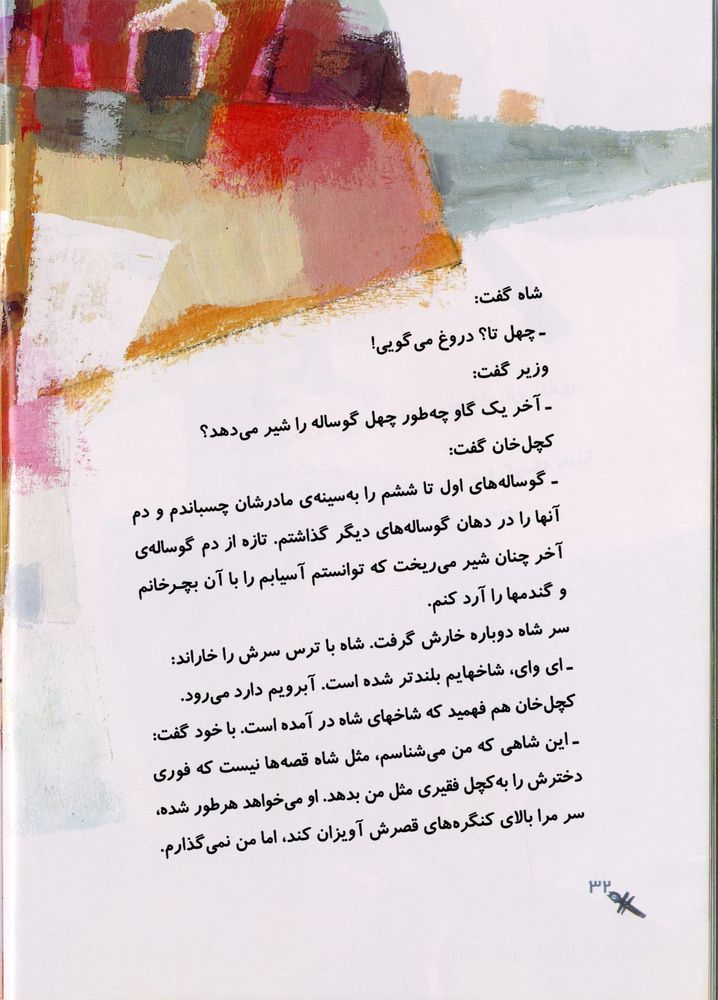 شاه گفت:
ـ چهل تا؟ دروغ می‌گویی!
وزیر گفت:
ـ آخر یک گاو چه‌طور چهل گوساله را شیر می‌دهد؟
کچل‌خان گفت:
ـ گوساله‌های اول تا ششم را به‌سینه‌ی مادرشان چسباندم و دم
آنها را در دهان گوساله‌های دیگر گذاشتم. تازه از دم گوساله‌ی
آخر چنان شیر می‌ریخت که توانستم آسیابم را با آن بچـرخانم
و گندمها را آرد کنم.
سر شاه دوباره خارش گرفت. شاه با ترس سرش را خاراند:
ـ ای وای، شاخهایم بلندتر شده است. آبرویم دارد می‌رود.
کچل‌خان هم فهمید که شاخهای شاه در آمده است. با خود گفت:
ـ این شاهی که من می‌شناسم، مثل شاه قصه‌ها نیست که فوری
دخترش را به‌کچل فقیری مثل من بدهد. او می‌خواهد هرطور شده،
سر مرا بالای کنگره‌های قصرش آویزان کند، اما من نمی‌گذارم.
۳۲